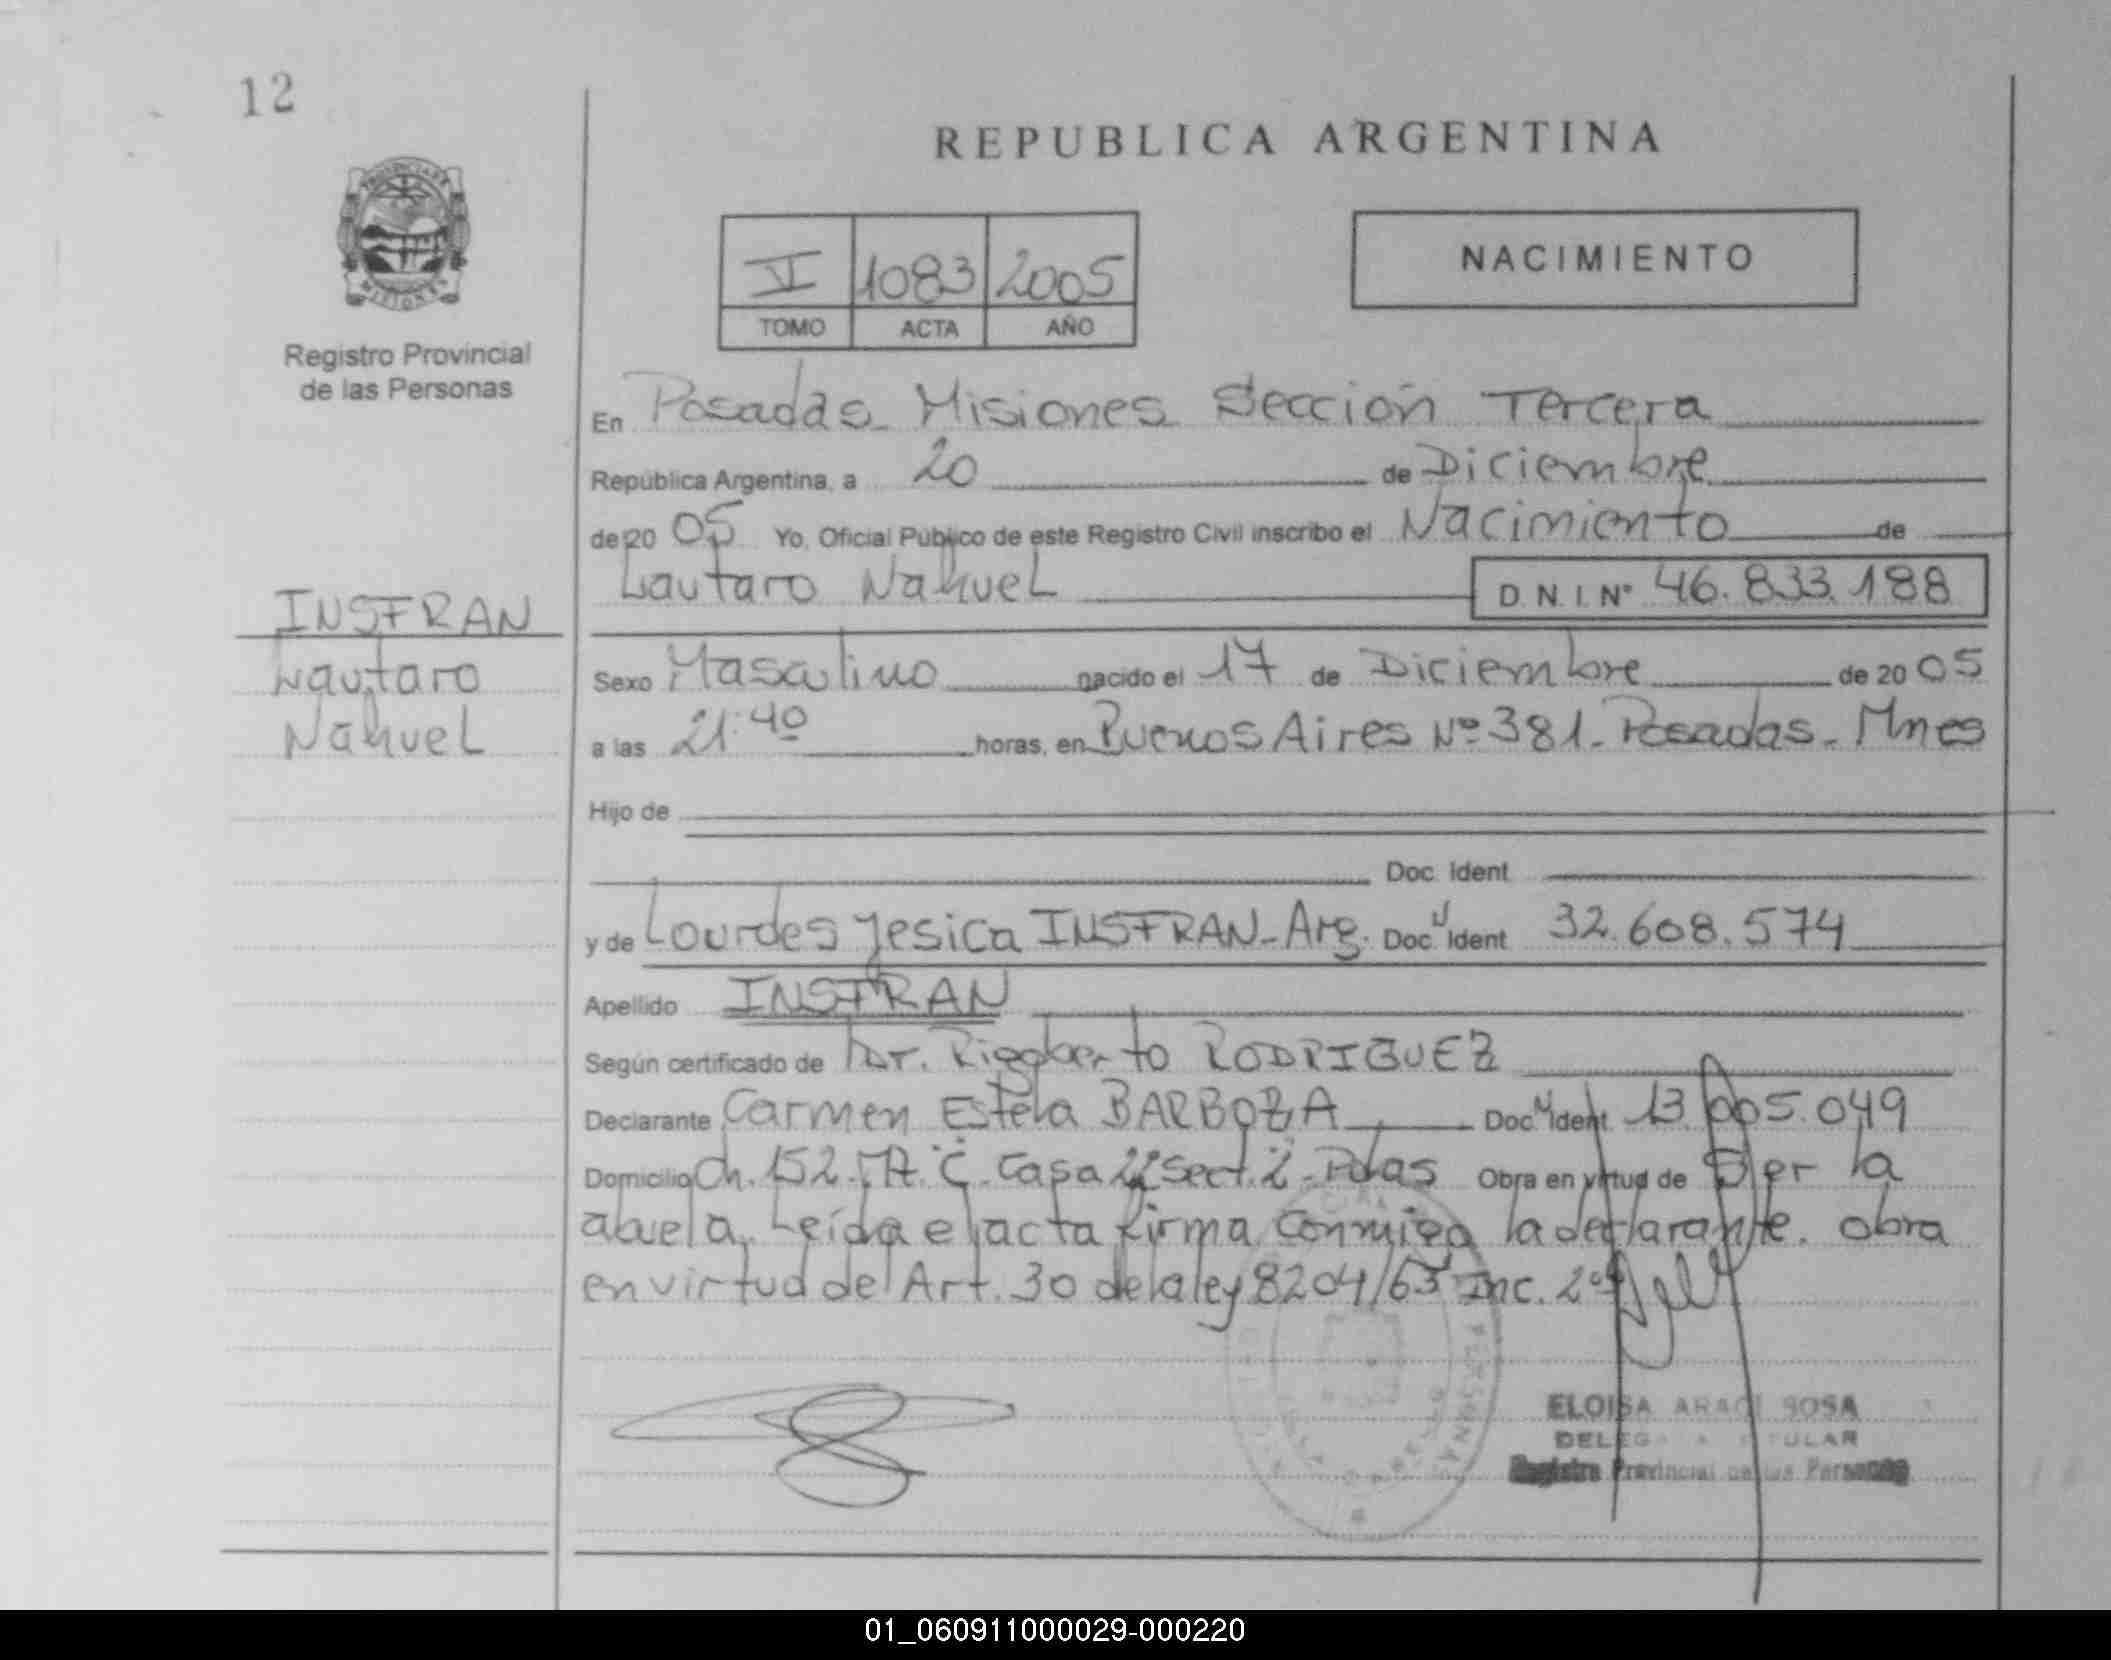 12
REPUBLICA ARGENTINA
PROVINCIA DE
MISIONES
Registro Provincial
de las Personas
V 1083 2005
TOMO ACTA AÑO
NACIMIENTO
En Posadas Misiones Sección Tercera
República Argentina, a 20 de Diciembre
de 20 05 Yo, Oficial Público de este Registro Civil inscribo el Nacimiento de
Lautaro Nahuel D.N.I. Nº 46.833.188
INSFRAN
Lautaro
Nahuel
Sexo Masculino nacido el 17 de Diciembre de 20 05
a las 21:40 horas, en Buenos Aires Nº 381. Posadas. Mnes
Hijo de
Doc. Ident
y de Lourdes Yesica INSFRAN - Arg. Doc. Ident 32.608.574
Apellido INSFRAN
Según certificado de Dr. Rigoberto RODRIGUEZ
Declarante Carmen Estela BARBOZA Doc. Ident. 13.005.049
Domicilio Ch. 152. "C". Casa 22 Sect. 2 - Pdas Obra en virtud de Ser la
abuela. Leída el acta firma conmigo la declarante. Obra
en virtud del Art. 30 de la ley 8204/63 Inc. 2º
ELOISA SOSA
Registro Provincial de las Personas
01_060911000029-000220